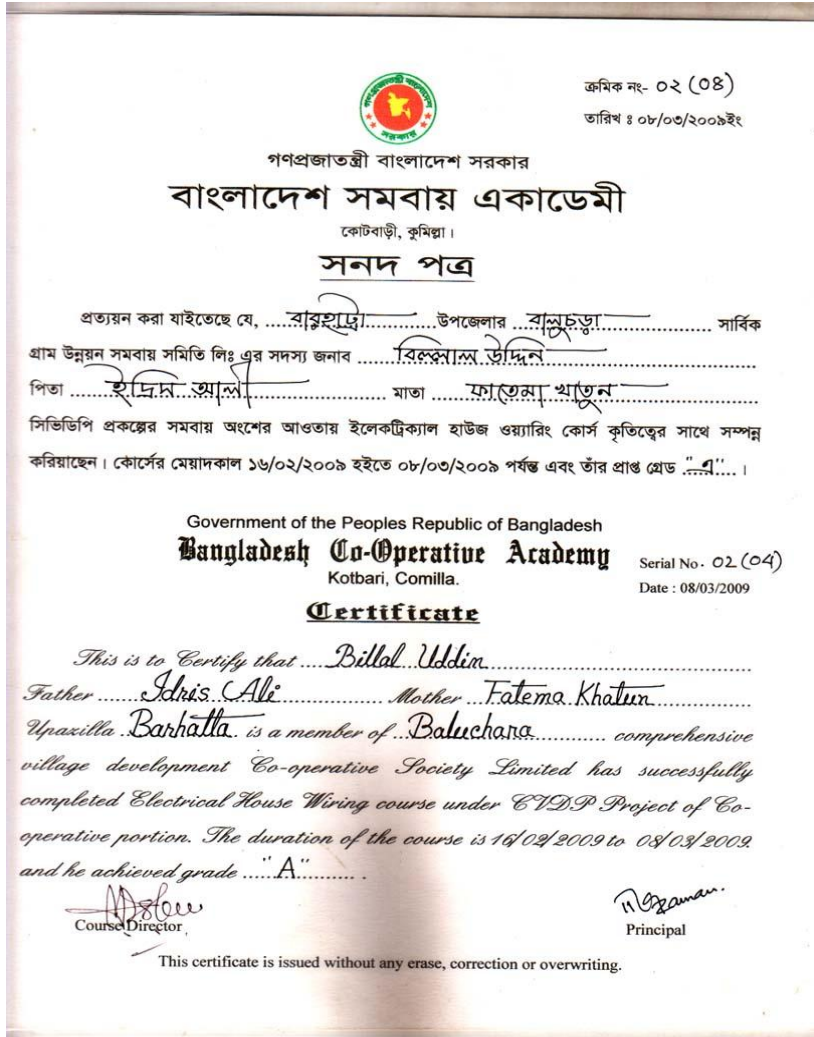 গণপ্রজাতন্ত্রী বাংলাদেশ
সরকার
ক্রমিক নং- ০২ (০৪)
তারিখ ঃ ০৮/০৩/২০০৯ইং
গণপ্রজাতন্ত্রী বাংলাদেশ সরকার
বাংলাদেশ সমবায় একাডেমী
কোটবাড়ী, কুমিল্লা।
সনদ পত্র
প্রত্যয়ন করা যাইতেছে যে, ......বারহাট্টা............উপজেলার ...বালুচড়া.................. সার্বিক
গ্রাম উন্নয়ন সমবায় সমিতি লিঃ এর সদস্য জনাব ......বিল্লাল উদ্দিন..............................
পিতা .......ইদ্রিস আলী....................... মাতা .......ফাতেমা খাতুন.......................
সিভিডিপি প্রকল্পের সমবায় অংশের আওতায় ইলেকট্রিক্যাল হাউজ ওয়্যারিং কোর্স কৃতিত্বের সাথে সম্পন্ন
করিয়াছেন। কোর্সের মেয়াদকাল ১৬/০২/২০০৯ হইতে ০৮/০৩/২০০৯ পর্যন্ত এবং তাঁর প্রাপ্ত গ্রেড ."এ".... ।
Government of the Peoples Republic of Bangladesh
Bangladesh Co-Operative Academy
Serial No. 02 (04)
Kotbari, Comilla.
Date : 08/03/2009
Certificate
This is to Certify that ....Billal Uddin...........................................
Father ......Idris Ali.................. Mother ...Fatema Khatun..............
Upazilla .Barhatta. is a member of ..Baluchara............ comprehensive
village development Co-operative Society Limited has successfully
completed Electrical House Wiring course under CVDP Project of Co-
operative portion. The duration of the course is 16/02/2009 to 08/03/2009.
and he achieved grade ....."A".......... .
Course Director
Principal
This certificate is issued without any erase, correction or overwriting.